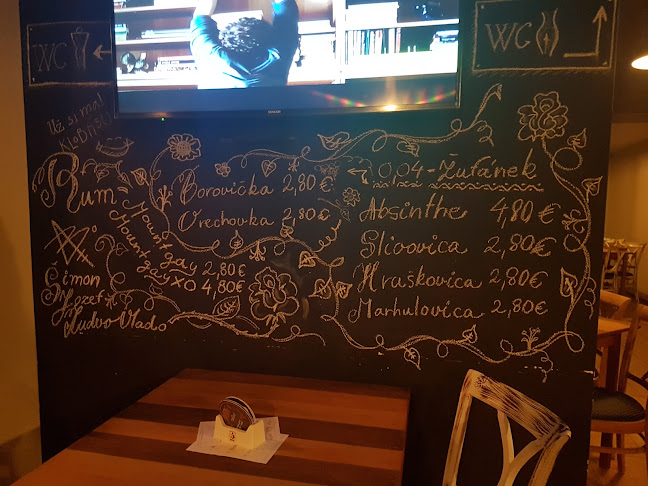 WC
WC
Už si mal
KLOBÁSU
Rum-
Mount gay 2,80 €
Mount gay XO 4,80 €
Šimon
Jozef
Ľudvo Vlado
Borovička 2,80 €
Orechovka 2,80 €
0,04 - Žufánek
Absinthe 4,80 €
Slivovica 2,80 €
Hruškovica 2,80 €
Marhulovica 2,80 €